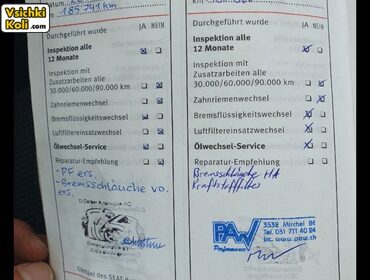 Vsichki
Koli.com
Datum
185.741 km
km
Durchgeführt wurde JA NEIN
Inspektion alle
12 Monate
Inspektion mit
Zusatzarbeiten alle
30.000/60.000/90.000 km
Zahnriemenwechsel
Bremsflüssigkeitswechsel
Luftfiltereinsatzwechsel
Ölwechsel-Service
Reparatur-Empfehlung
ers.
- Bremsschläuche vo.
ers
Stempel des SEAT
Durchgeführt wurde JA NEIN
Inspektion alle
12 Monate
Inspektion mit
Zusatzarbeiten alle
30.000/60.000/90.000 km
Zahnriemenwechsel
Bremsflüssigkeitswechsel
Luftfiltereinsatzwechsel
Ölwechsel-Service
Reparatur-Empfehlung
Bremsschläuche HA
Kraftstofffilter
PAW
3532 Mirchel BE
Tel. 031 711 40 24
Int. www.paw.ch